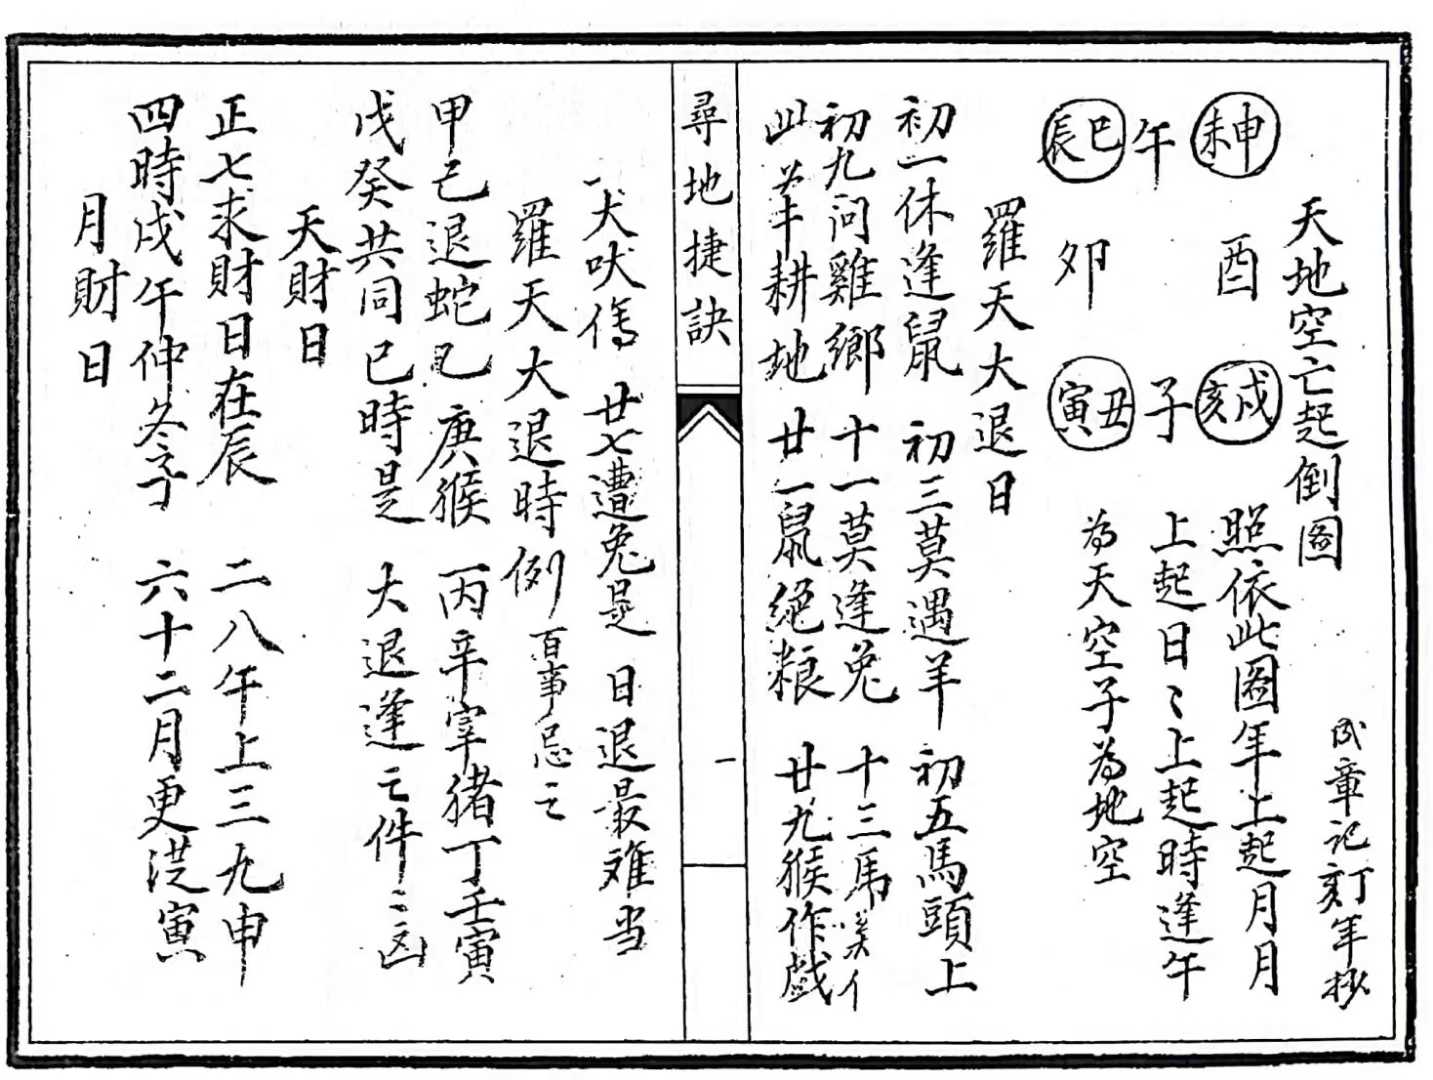 天地空亡起倒图
章記刻年抄
照依此图年上起月月
上起日〻上起時逢午
為天空子為地空
未申
酉
戌亥
午
子
辰巳
卯
寅丑
羅天大退日
初一休逢鼠 初三莫遇羊 初五馬頭上
初九问雞鄉 十一莫逢兔 十三馬
此 耕地 廿一鼠絕粮 廿九猴作戯
尋地捷訣
一
犬吠傷 廿七遭兔是 日退最难当
羅天大退時例 百事忌之
甲己退蛇已 庚猴 丙辛宰猪丁壬寅
戊癸共同已時是 大退逢之件〻凶
天財日
正七求財日在辰 二八午上三九申
四時戌午仲冬子 六十二月更从寅
月財日